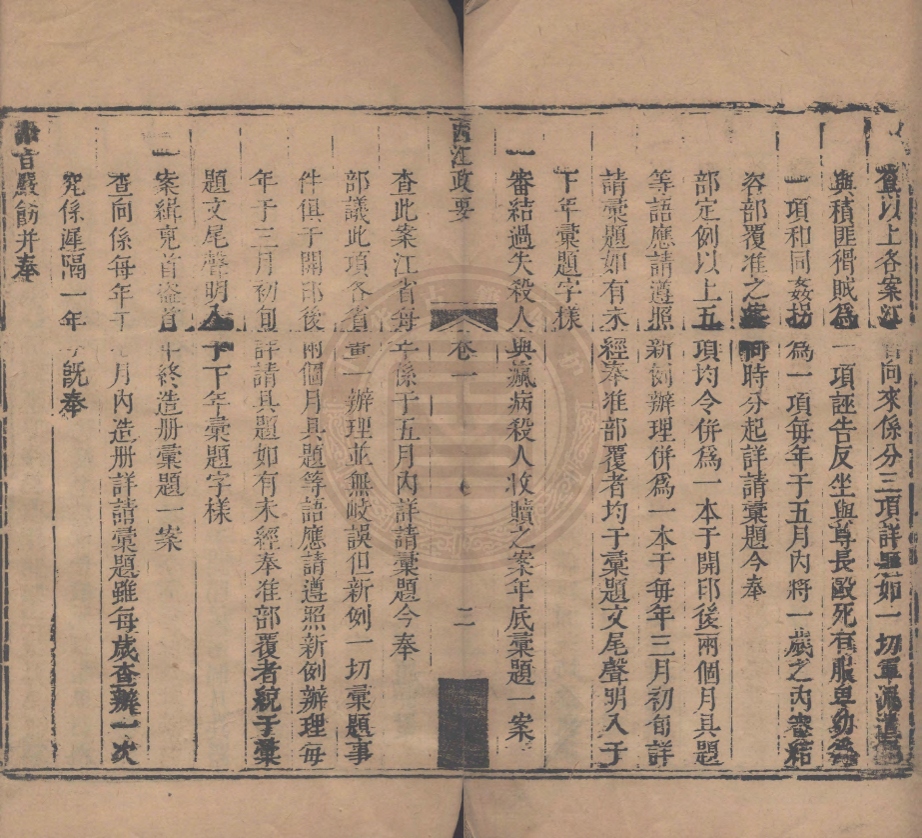 查以上各案江省向來係分三項詳題如一切軍流遣
與積匪猾賊為一項誣告反坐與尊長毆死有服卑幼為
一項和同姦拐為一項每年于五月內將一歲之內審結
咨部覆准之案同時分起詳請彙題今奉
部定例以上五項均令併為一本于開印後兩個月具題
等語應請遵照新例辦理併為一本于每年三月初旬詳
請彙題如有未經奉准部覆者均于彙題文尾聲明入于
下年彙題字樣
一審結過失殺人與瘋病殺人收贖之案年底彙題一案
西江政要 卷一 二
查此案江省每年係于五月內詳請彙題今奉
部議此項各省畫一辦理並無歧誤但新例一切彙題事
件俱于開印後兩個月具題等語應請遵照新例辦理每
年于三月初旬詳請具題如有未經奉准部覆者統于彙
題文尾聲明入于下年彙題字樣
一案緝兇首盜首年終造册彙題一案
查向係每年于七月內造册詳請彙題雖每歲查辦一次
究係遲隔一年今既奉
諭旨嚴飭并奉